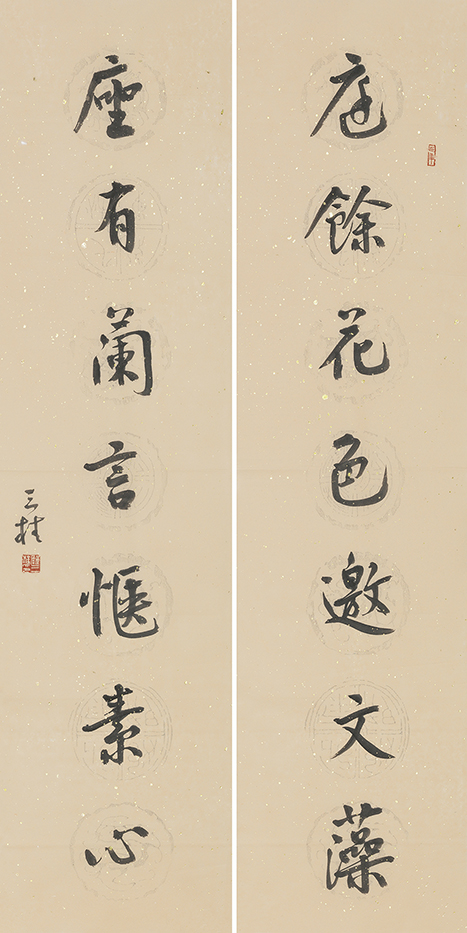 庭餘花色邀文藻
座有蘭言愜素心
三桂